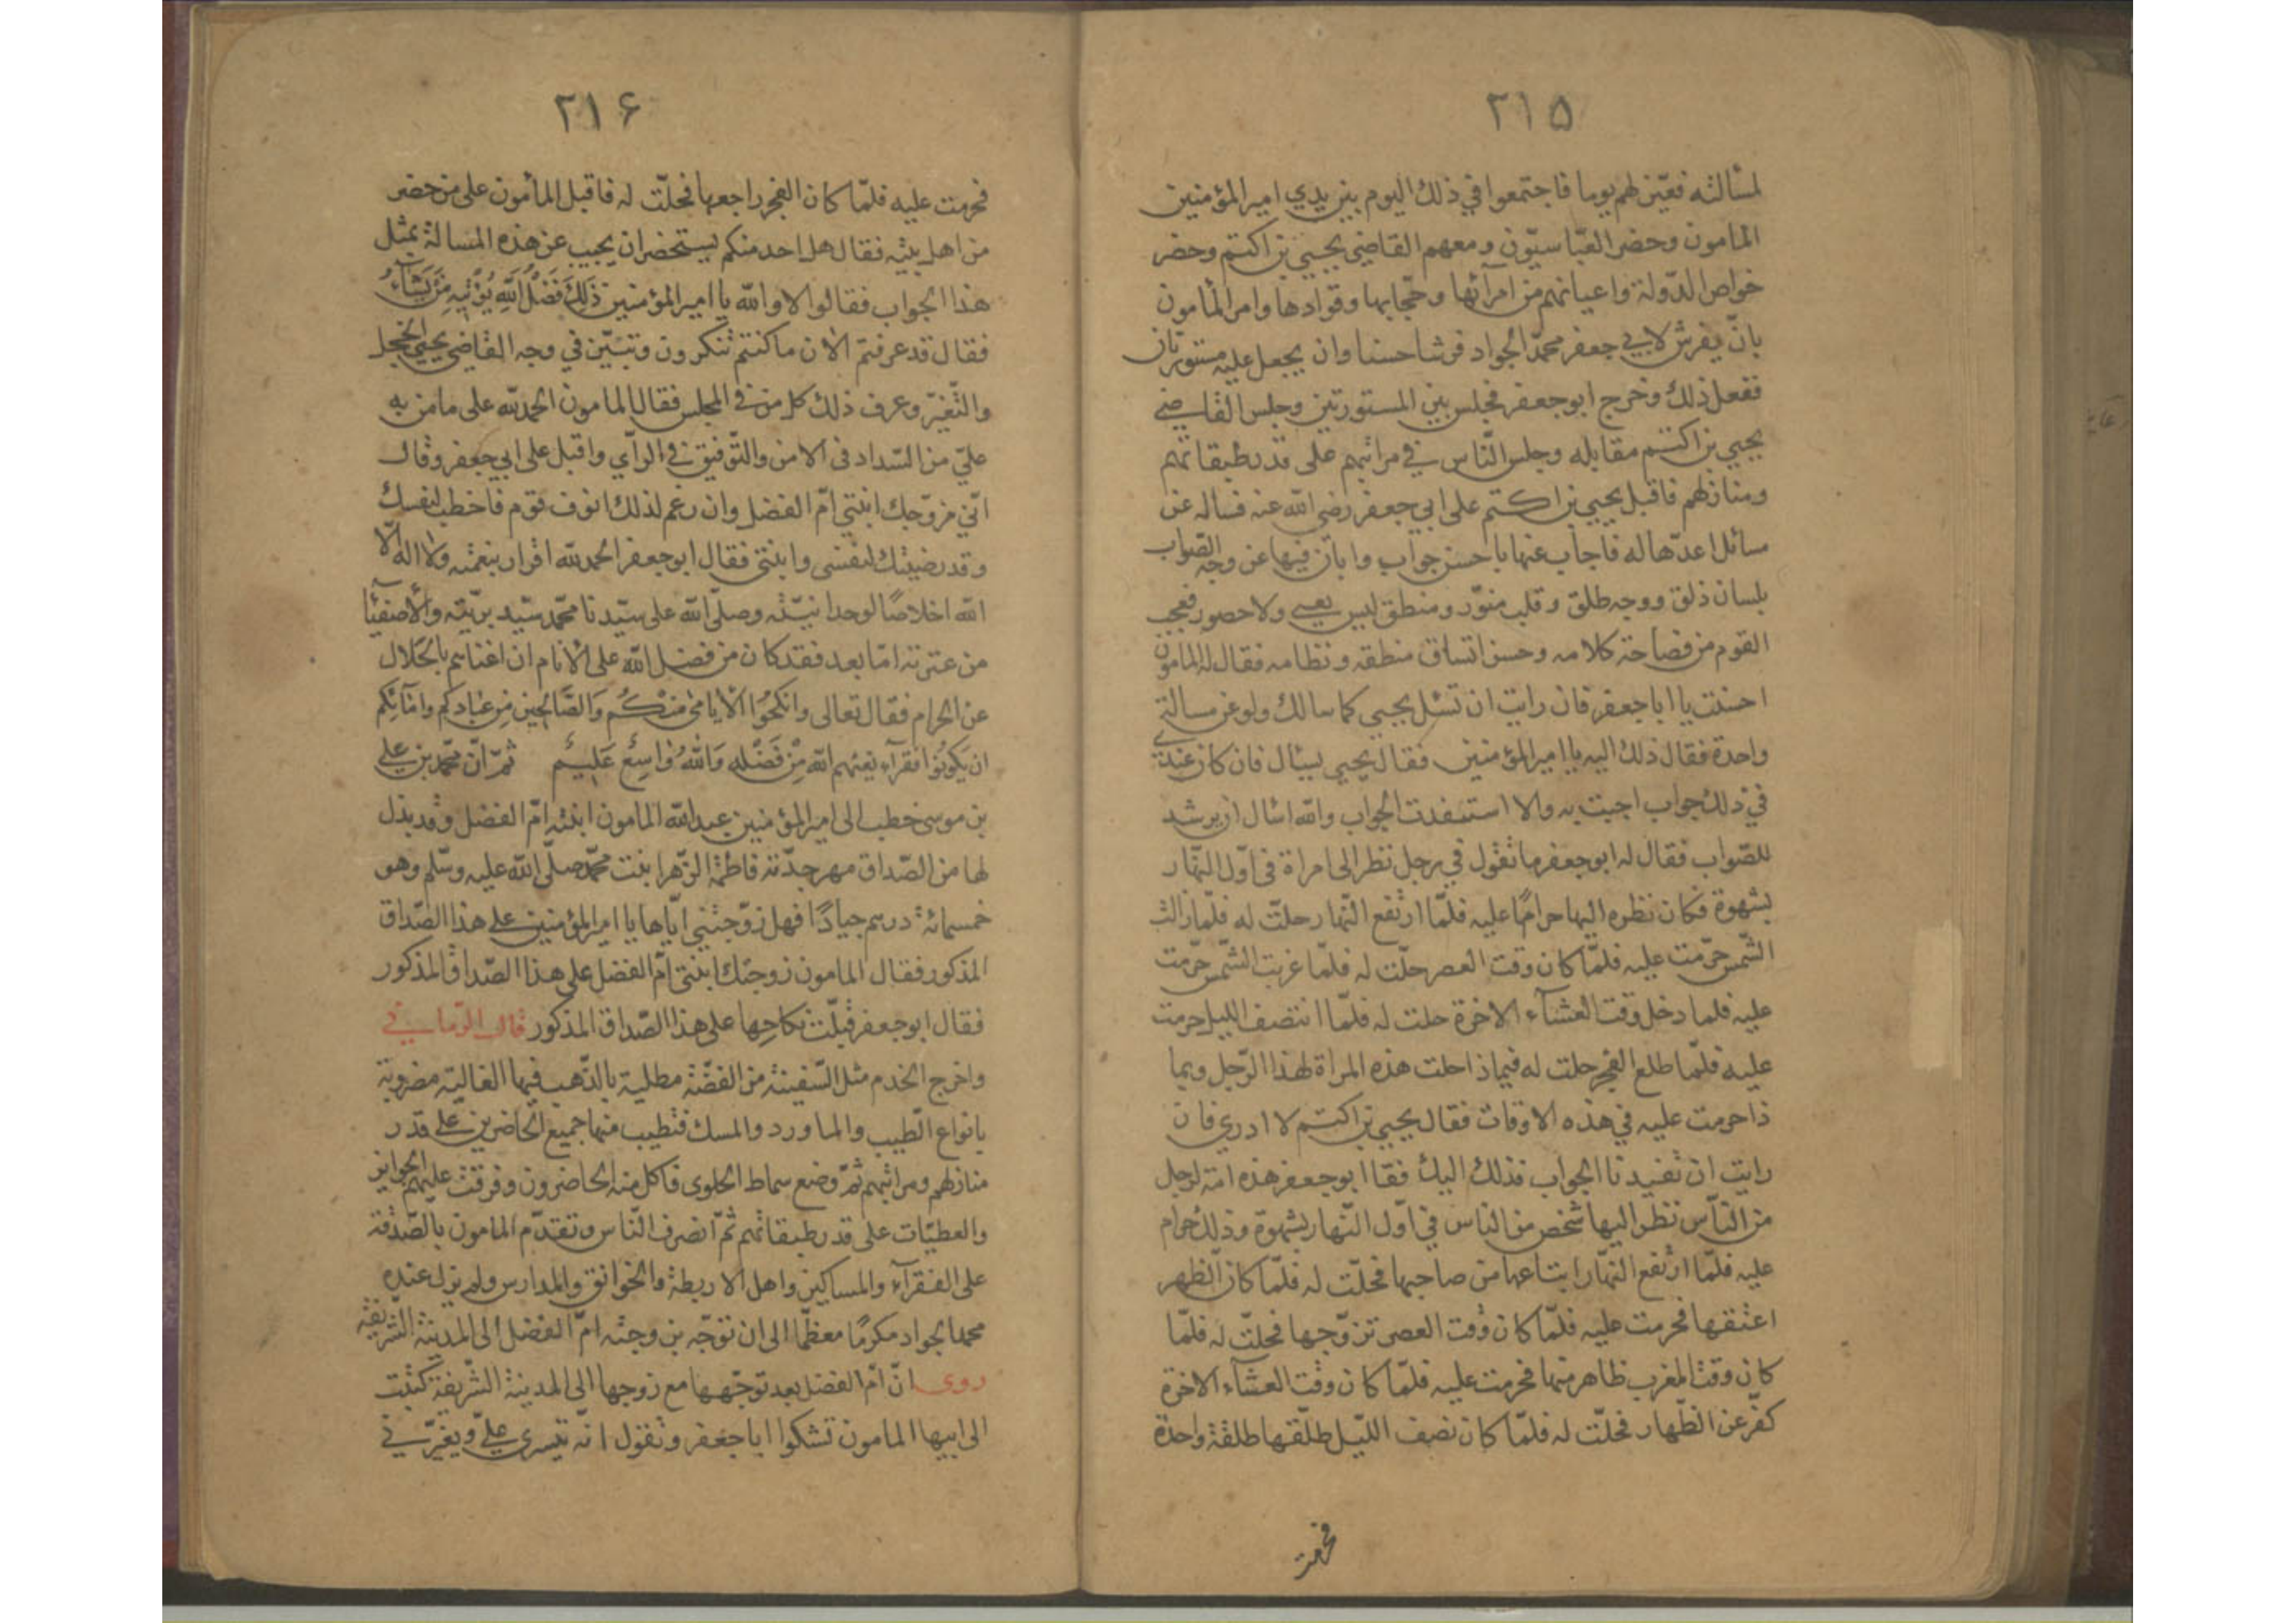 ٢١٥
لمسألته فعيّن لهم يوما فاجتمعوا في ذلك اليوم بين يدي امير المؤمنين
المامون وحضر العبّاسيّون ومعهم القاضي يحيي بن اكتم وحضر
خواص الدّولة واعيانهم من امرآئها وحجّابها وقوادها وامر المأمون
بانّ يفرش لابي جعفر محمّد الجواد فرشا حسنا وان يجعل عليه مستورتان
ففعل ذلك وخرج ابو جعفر فجلس بين المستورتين وجلس القاضي
يحيي بن اكتم مقابله وجلس النّاس في مراتبهم على قدر طبقاتهم
ومنازلهم فاقبل يحيي بن اكتم على ابي جعفر رضي الله عنه فساله عن
مسائل اعدّها له فاجاب عنها باحسن جواب وابان فيها عن وجه الصّواب
بلسان ذلق ووجه طلق وقلب منوّر ومنطق ليس بعيي ولا حصور فعجب
القوم من فصاحة كلامه وحسن اتساق منطقه ونظامه فقال له المامون
احسنت يا ابا جعفر فان رايت ان تسئل يحيي كما سالك ولو عن مسالة
واحدة فقال ذلك اليه يا امير المؤمنين فقال يحيي يسئال فان كان عندي
في ذلك جواب اجبت به والا استفدت الجواب والله اسال ان يرشد
للصّواب فقال له ابو جعفر ما تقول في رجل نظر الى امراة فى اوّل النّهار
بشهوة فكان نظره اليها حرامًا عليه فلمّا ارتفع النّهار حلّت له فلمّا زالت
الشّمس حرّمت عليه فلمّا كان وقت العصر حلّت له فلمّا غربت الشّمس حرّمت
عليه فلما دخل وقت العشآء الاخرة حلت له فلمّا انتصف الليل حرمت
عليه فلمّا طلع الفجر حلت له فبماذا حلت هذه المراة لهذا الرّجل وبما
ذا حرمت عليه في هذه الاوقات فقال يحيي بن اكتم لا ادري فان
رايت ان تفيدنا الجواب فذلك اليك فقا ابو جعفر هذه امة لرجل
من النّاس نظر اليها شخص من الناس في اوّل النّهار بشهوة وذلك حرام
عليه فلمّا ارتفع النهّار ابتاعها من صاحبها فحلّت له فلمّا كان الظهر
اعتقها فحرمت عليه فلمّا كان وقت العصر تزوّجها فحلّت له فلمّا
كان وقت المغرب ظاهر منها فحرمت عليه فلمّا كان وقت العشآء الاخرة
كفّر عن الظّهار فحلّت له فلمّا كان نصف اللّيل طلّقها طلقة واحدة
فحرمت
٢١۶
فحرمت عليه فلمّا كان الفجر راجعها فحلّت له فاقبل المأمون على من حضر
من اهل بيته فقال هل احد منكم يستحضر ان يجيب عن هذه المسالة بمثل
هذا الجواب فقالوا لا والله يا امير المؤمنين ذَلِكَ فَضْلُ اللَّهِ يُؤْتِيهِ مَنْ يَشَآءُ
فقال قد عرفتم الان ما كنتم تنكرون وتبيّن في وجه القاضي يحيي الخجل
والتّغيّر وعرف ذلك كل من في المجلس فقال المامون الحمد لله على ما من به
عليّ من السّداد فى الامر والتّوفيق في الرأي واقبل على ابي جعفر وقال
انّي مزوّجك ابنتي امّ الفضل وان رغم لذلك انوف قوم فاخطب لنفسك
وقد رضيتك لنفسى وابنتى فقال ابو جعفر الحمد لله اقرار بنعمته ولا اله الّا
الله اخلاصًا لوحدانيّته وصلّى الله على سيّدنا محمّد سيّد بريّته والأصفيآء
من عترته امّا بعد فقد كان من فضل الله على الأنام ان اغناهم بالحَلال
عن الحرام فقال تعالى وَانكحُوا الأيَامى مِنكُم وَالصَّالِحِين مِن عِبَادِكم وامَآئِكُم
ان يَكونُوا فقرآء يغنهم الله مِنْ فَضْلِه وَاللهُ وَاسِعٌ عَلِيمٌ ثمّ انّ محمّد بن علي
بن موسى خطب الى امير المؤمنين عبد الله المامون ابنته امّ الفضل وقد بذل
لها من الصّداق مهر جدّته فاطمة الزّهرا بنت محمّد صلّى الله عليه وسلّم وهو
خمسمائة درهم جيادًا فهل زوّجتني ايّاها يا امير المؤمنين علي هذا الصّداق
المذكور فقال المامون زوجتك ابنتى امّ الفضل على هذا الصّداق المذكور
فقال ابو جعفر قبلت نكاحها على هذا الصّداق المذكور قال الرّماني
واخرج الخدم مثل السّفينة من الفضّة مطلية بالذّهب فيها الغالية مضروبة
بانواع الطّيب والماورد والمسك فتطيب منها جميع الحاضرين علي قدر
منازلهم ومراتبهم ثمّ وضع سماط الحلوى فاكل منه الحاضرون وفرقت عليهم الجوايز
والعطيّات على قدر طبقاتهم ثمّ انصرف النّاس وتقدّم المامون بالصّدقة
على الفقرآء والمساكين واهل الاربطة والخوانق والمدارس ولم يزل عنده
محمد الجواد مكرمًا معظمًا الى ان توجّه بزوجته امّ الفضل الى المدينة الشّريفة
روى انّ امّ الفضل بعد توجّهها مع زوجها الى المدينة الشّريفة كتبت
الى ابيها المامون تشكوا ابا جعفر وتقول انّه يتسرى عليّ ويغيّرني